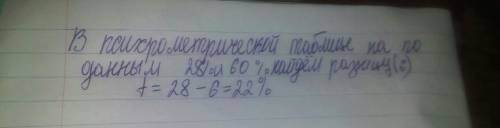 В психрометрической таблице на по
данным 28% и 60% найдём разницу(6)
t = 28 - 6 = 22%